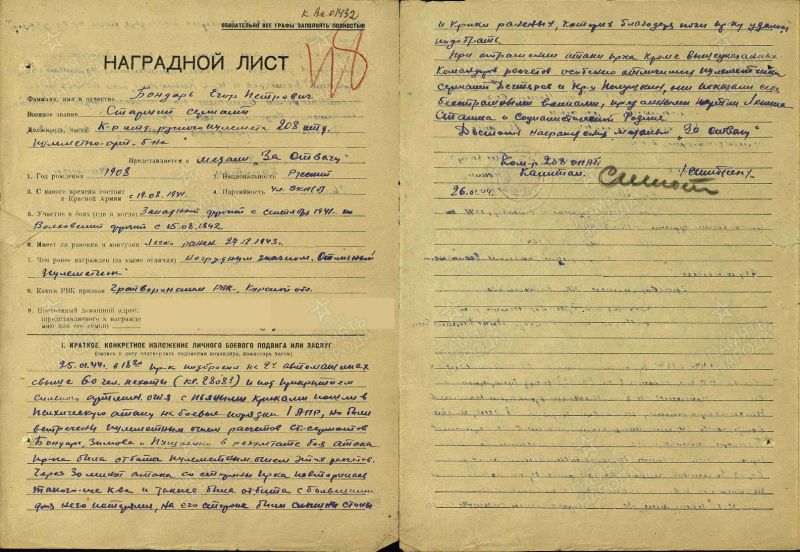 к Ве 01432
ОБЯЗАТЕЛЬНО ВСЕ ГРАФЫ ЗАПОЛНЯТЬ ПОЛНОСТЬЮ
НАГРАДНОЙ ЛИСТ
Фамилия, имя и отчество Бондарь Егор Петрович
Военное звание Старший сержант
Должность, часть К-р отд. ручного пулемета 208 отд.
пулеметно-арт. б-на
Представляется к медали „За отвагу"
1. Год рождения 1908 2. Национальность Русский
3. С какого времени состоит в Красной Армии с 19.08.1941. 4. Партийность Чл. ВКП(б)
5. Участие в боях (где и когда) Западный фронт с сентября 1941. по
Волховский фронт с 15.08.1942.
6. Имеет ли ранения и контузии Легко ранен 24.12.1943.
7. Чем ранее награжден (за какие отличия) Нагрудным значком „Отличный
пулеметчик"
8. Каким РВК призван Грайворонским РВК, Курской обл.
9. Постоянный домашний адрес:
(представляемого к награждению или его семьи)
I. КРАТКОЕ, КОНКРЕТНОЕ ИЗЛОЖЕНИЕ ЛИЧНОГО БОЕВОГО ПОДВИГА ИЛИ ЗАСЛУГ
25.01.44г. в 18 20 пр-к подбросил на 2х автомашинах
свыше 60 чел. пехоты (кв. 2808) и под прикрытием
сильного артмин. огня с пьяными криками пошли в
психическую атаку на боевые порядки 1 АПР, но были
встречены пулеметным огнем расчетов ст. сержантов
Бондарь, Зимова и в результате боя атака
пр-ка была отбита пулеметным огнем этих расчетов.
Через 30 минут атака со стороны пр-ка повторилась
такого-же к-ва и также была отбита с большими
для него потерями, на его стороне были слышны стоны
и крики раненых, которых благодаря ночи пр-ку удалось
подобрать.
При отражении атаки пр-ка кроме вышеуказанных
командиров расчетов особенно отличились пулеметчики
сержант Дегтярев и кр-ц они показали себя
бесстрашными воинами, преданными партии Ленина
Сталина и Социалистической Родине.
Достоин награждения медалью „За отвагу"
Ком-р 208 ОПАБ
Капитан
26.01.44г.